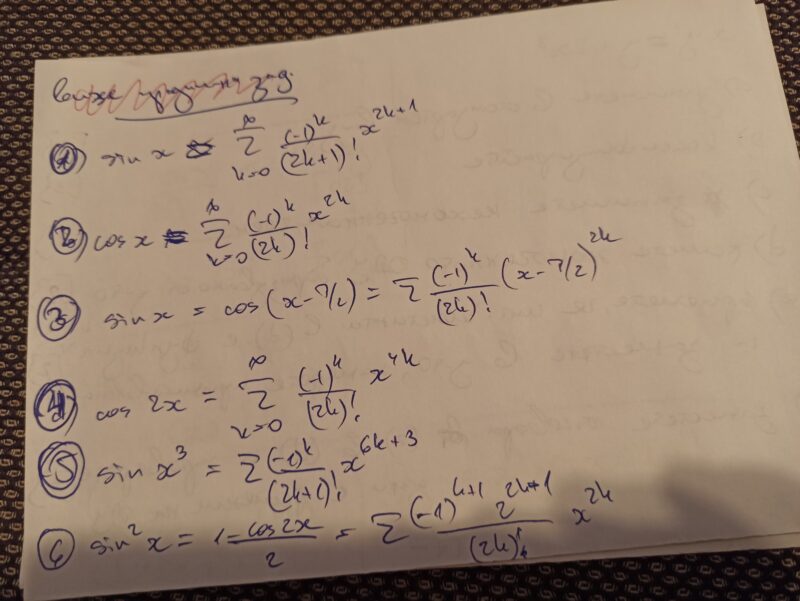 1) sin x = ∞ Σ k=0 (-1)^k/(2k+1)! x^{2k+1}
2) cos x = ∞ Σ k=0 (-1)^k/(2k)! x^{2k}
3) sin x = cos(x-π/2) = Σ (-1)^k/(2k)! (x-π/2)^{2k}
4) cos 2x = ∞ Σ k=0 (-1)^k/(2k)! x^{4k}
5) sin x^3 = Σ (-1)^k/(2k+1)! x^{6k+3}
6) sin^2 x = 1-cos2x/2 = Σ (-1)^{k+1} 2^{2k+1}/(2k)! x^{2k}